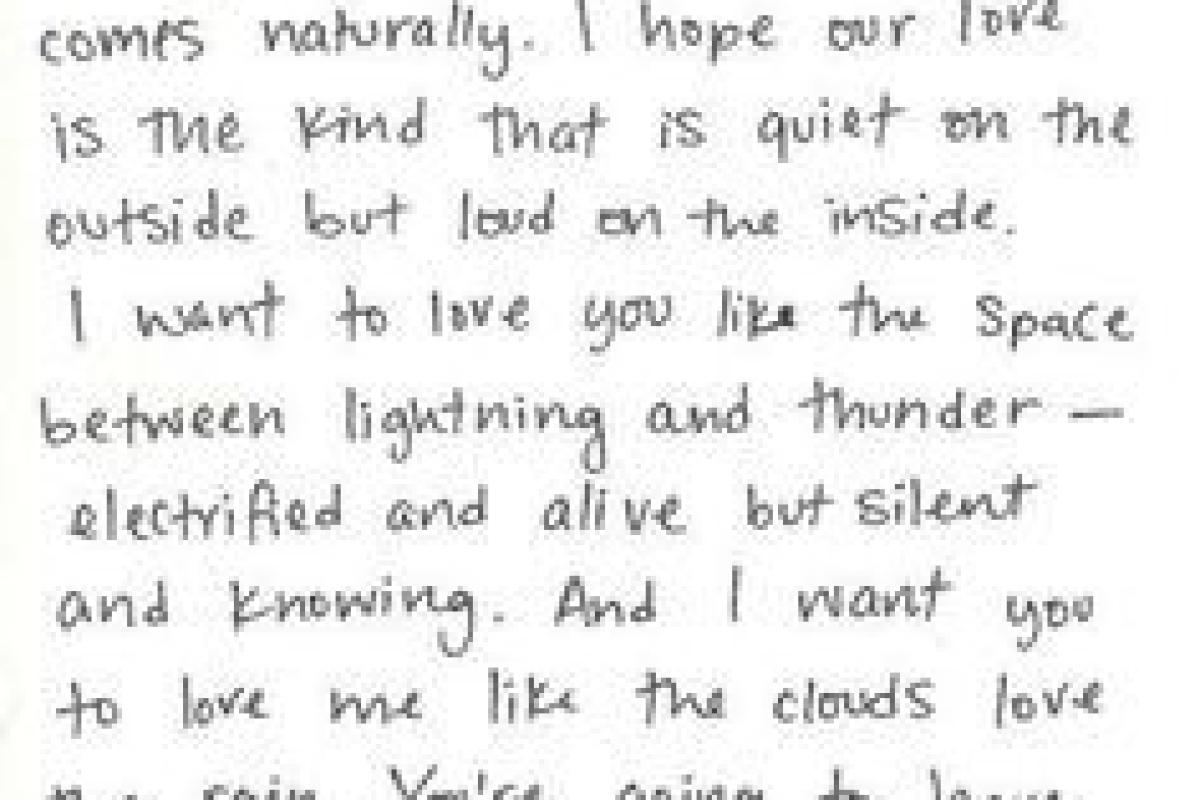 comes naturally. I hope our love
is the kind that is quiet on the
outside but loud on the inside.
I want to love you like the space
between lightning and thunder —
electrified and alive but silent
and knowing. And I want you
to love me like the clouds love
rain. You're going to